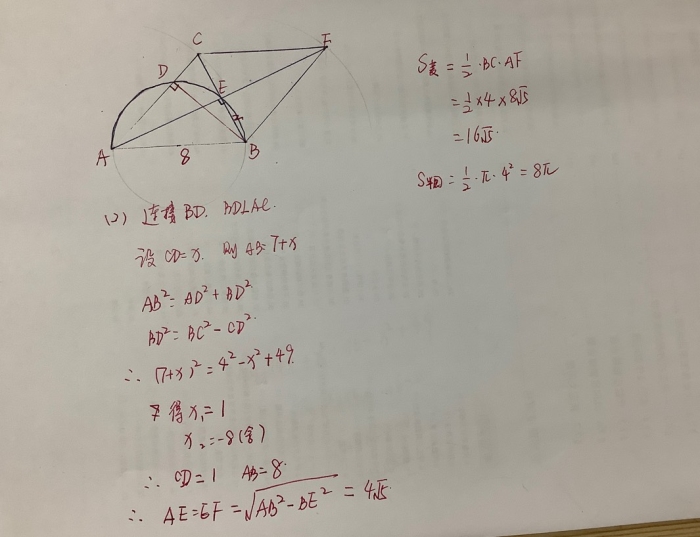 C
F
D
E
A
8
B
S菱 = 1/2 · BC · AF
= 1/2 × 4 × 8√15
= 16√15
S半圆 = 1/2 · π · 4² = 8π
(2) 连接 BD. BD⊥AC.
设 CD=x. 则 AB=7+x
AB² = AD² + BD²
BD² = BC² - CD²
∴ (7+x)² = 4² - x² + 49
得 x₁ = 1
x₂ = -8 (舍)
∴ CD = 1 AB = 8
∴ AE = EF = √AB² - BE² = 4√15